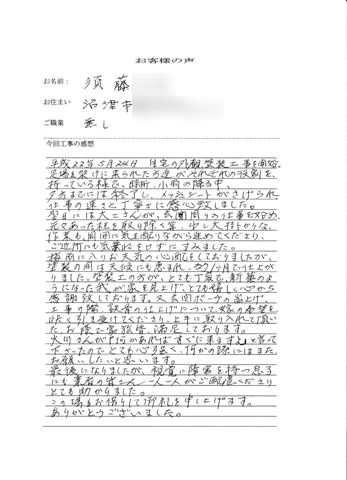 お客様の声
お名前: 須藤
お住まい 沼津市
ご職業 無し
今回工事の感想
平成22年5月24日 自宅の外観塗装工事を開始。
足場を架けに来られた方達がそれぞれの役割を
持っている様で、時折、小雨の降る中、
夕方までには終了し、メッシュシートがさげられ
仕事の速さと丁寧さに感心致しました。
翌日には大工さんが、玄関周りの仕事を始め、
元であった柱を取り除く等、少し大掛かりな、
作業も、周囲に気を配りながら進めてくださり、
ご近所にも気兼ねをせずにすみました。
梅雨に入りお天気の心配もしておりましたが、
塗装の間は天候にも恵まれ、約1ヶ月で仕上が
りました。塗装工の方が、とても丁寧で、新築のよ
うになった我が家を見上げ、とても嬉しく心から
感謝致しております。又、玄関ポーチの
工事の際、鉄骨の仕上げについて、嫁の希望を
快く引き受けてくださり、上手に取り入れて頂い
た、お陰で家族皆、満足しております。
大川さんが「何かあればすぐに来ますよ」と言って
下さったので、とても心強く、何かの際にはまた、
お願いしたいと思います。
最後になりましたが、視覚に障害を持つ息子
にも業者の皆さん一人一人がご配慮くださり
とても助かりました。
この場をお借りして御礼を申し上げます。
ありがとうございました。